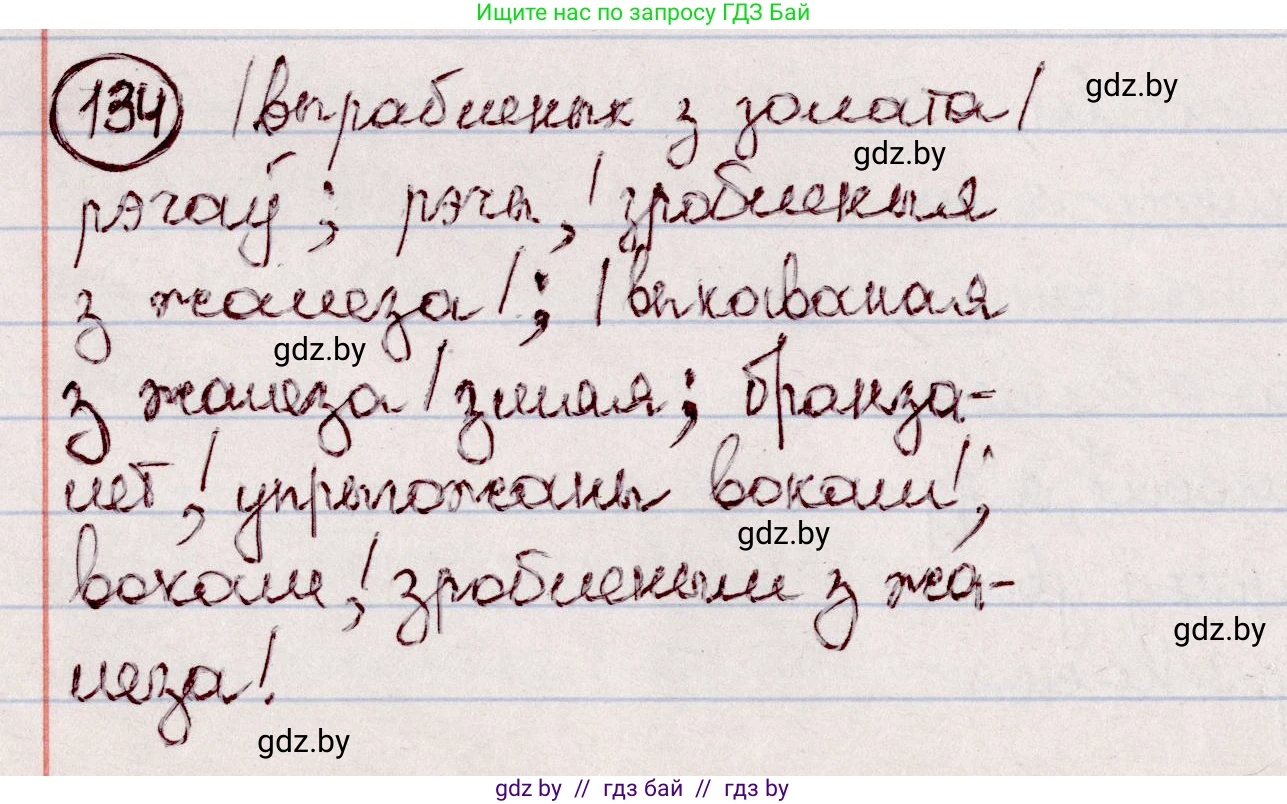 Ищите нас по запросу ГДЗ Бай
134 /вырабленых з золата/
gdz.by
gdz.by
рэчаў; рэчы, /зробленыя
з жалеза/; /выкаваная
gdz.by
з жалеза/ зямля; бранза-
лет, /упрыгожаны вокам/;
gdz.by
вокам, /зробленым з жа-
gdz.by
леза/.
gdz.by
gdz by // гдз бай // gdz.by